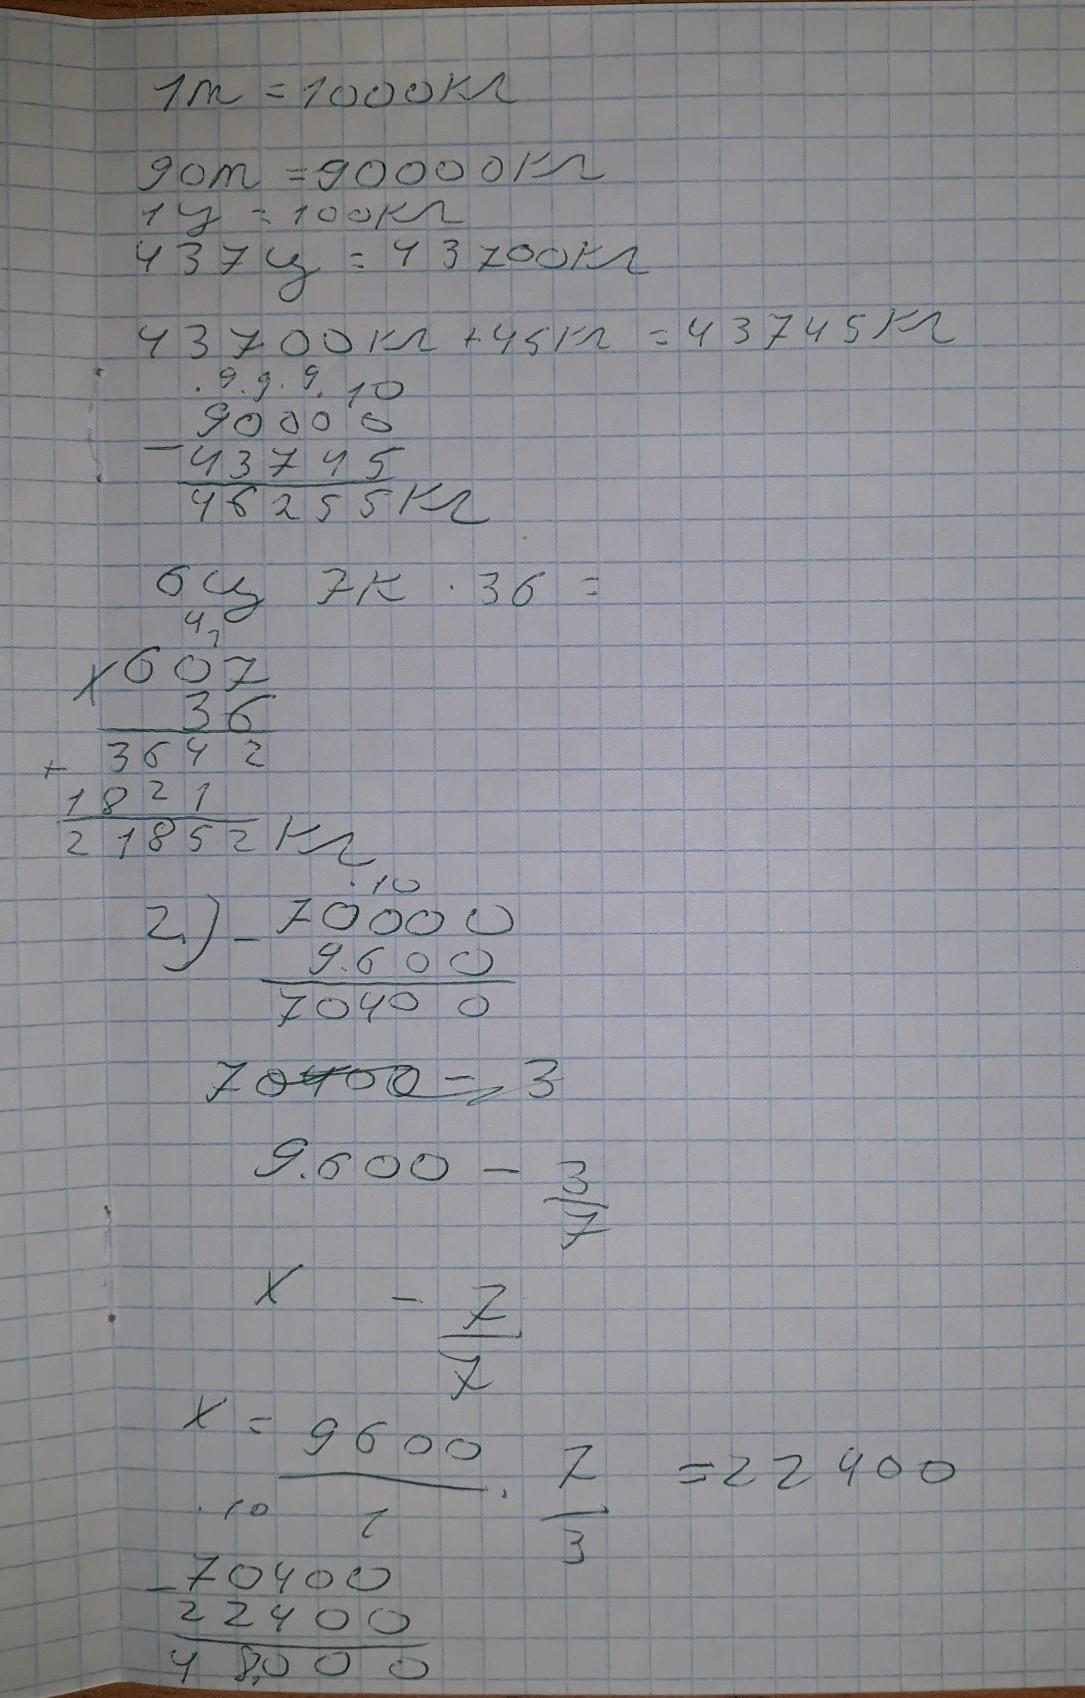 1т = 1000кг
90т = 90000кг
1ц = 100кг
437ц = 43700кг
43700кг + 45кг = 43745кг
.9.9.9.10
90000
- 43745
46255кг
6ц 7к · 36 =
4
x 607
36
3642
+
1821
21852кг
.10
2) - 70000
9.600
70400
70400 - 3
9.600 - 3/7
x - 7/7
x = 9600/1 · 7/3 = 22400
.10
- 70400
22400
48000